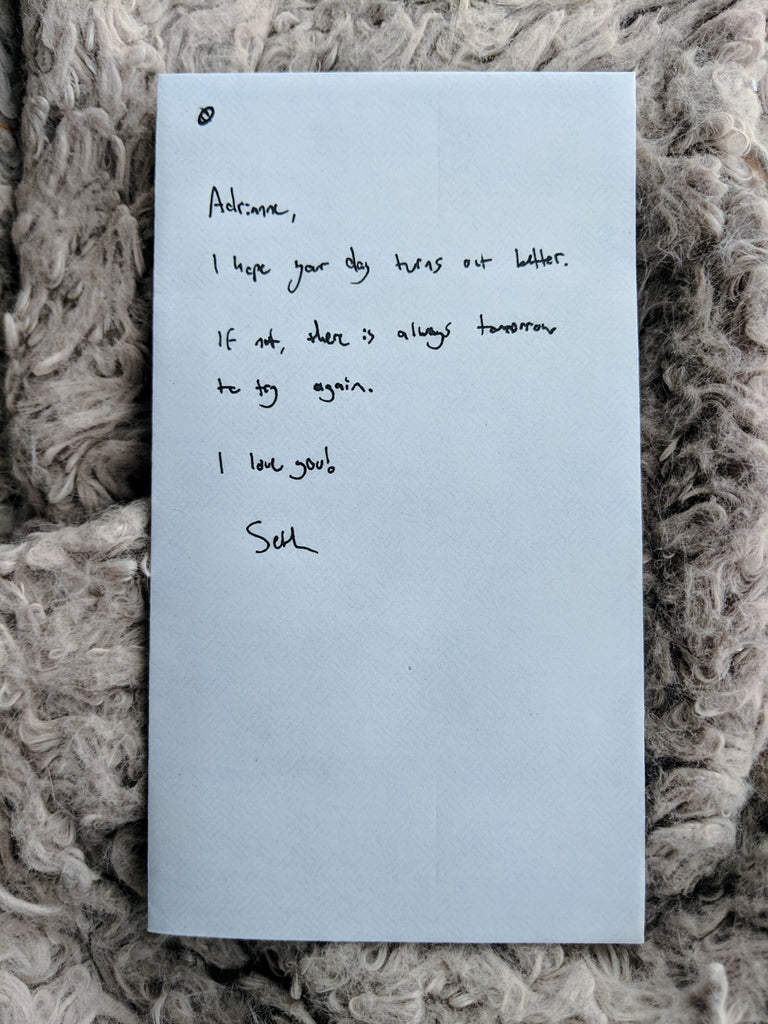 0
Adrianne,
I hope your day turns out better.
If not, there is always tomorrow
to try again.
I love you!
Seth